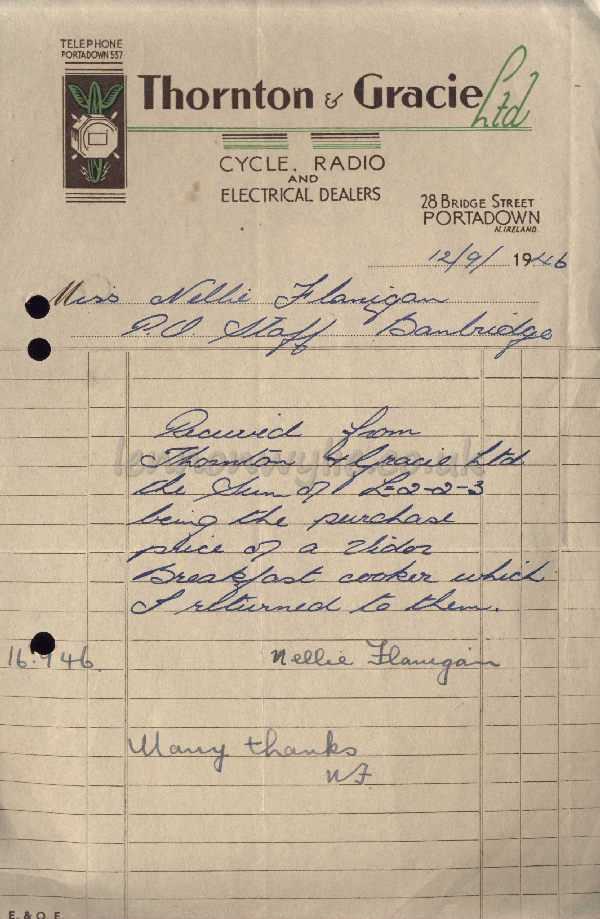 TELEPHONE
PORTADOWN 557
Thornton & Gracie Ltd
CYCLE, RADIO
AND
ELECTRICAL DEALERS
28 BRIDGE STREET
PORTADOWN
N. IRELAND.
12/9/ 1946
Miss Nellie Flanigan
P.O. Staff Banbridge
Received from
Thornton & Gracie Ltd
the Sum of £2-2-3
being the purchase
price of a Vidor
Breakfast cooker which
I returned to them.
16.9.46. Nellie Flanigan
Many thanks
NF
E. & O. E.